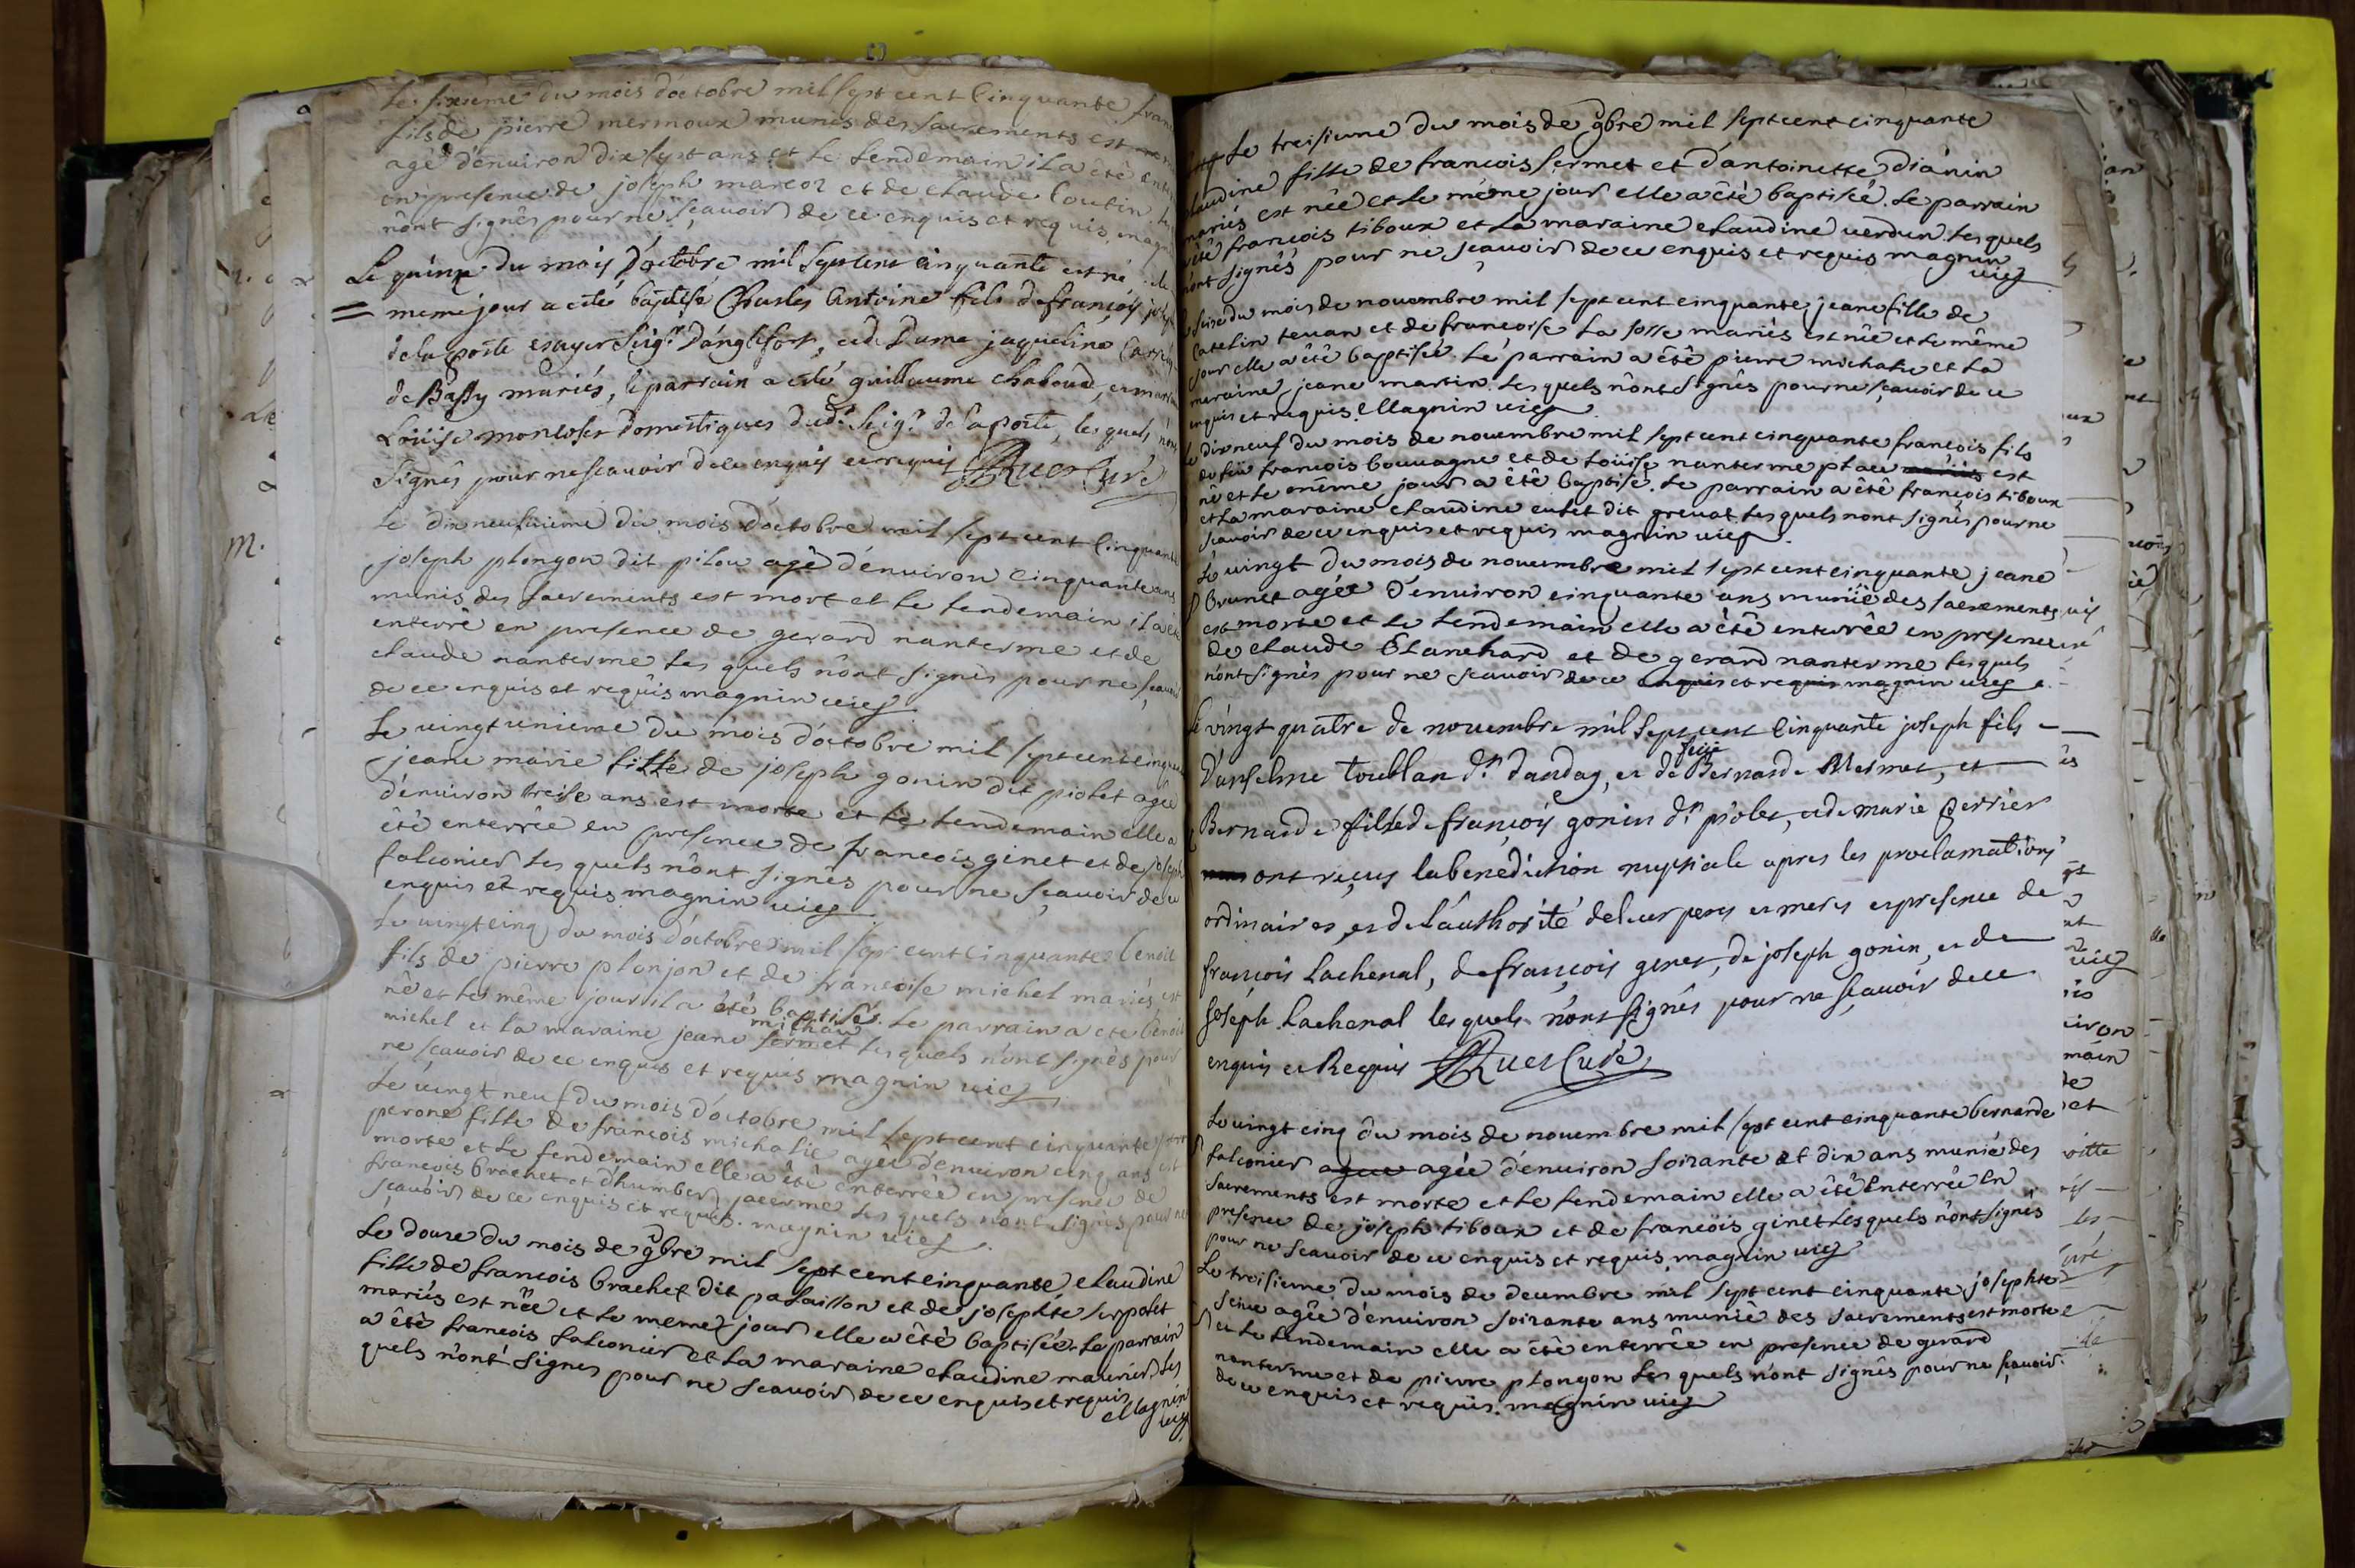 Le sixieme du mois d'octobre mil sept cent cinquante
fils de pierre mermoux munis des sacrements est
agé d'enuiron dix sept ans et le lendemain il a été
en presence de joseph marcoz et de claude coutin
n'ont signés pour ne sçauoir de ce enquis et requis
Le quinze du mois d'octobre mil sept cent cinquante est né
meme jour a eté baptisé Charles Antoine fils de françois
de la poste esayer Seig.r D'anglefort, et de Dame jaqueline
de Bassy mariés, le parrain a eté guillaume chaboud,
Loüise domestiques dud.t Seig.r de la poste, les quels
signés pour ne scauoir de ce enquis et requis Ruer Curé
Le dix neufuieme du mois d'octobre mil sept cent cinquante
joseph plongon dit pilou agé d'enuiron cinquante ans
munis des sacrements est mort et le lendemain il a
enterré en presence de gerard nanterme et de
claude nanterme les quels n'ont signés pour ne
de ce enquis et requis magnin uic
Le uingt unieme du mois d'octobre mil sept cent
jeane marie fille de joseph gonin dit piolet agée
d'enuiron treise ans est morte et le lendemain elle a
été enterrée en presence de francois ginet et de joseph
falconier les quels n'ont signés pour ne sçauoir de ce
enquis et requis magnin uic
Le uingt cinq du mois d'octobre mil sept cent cinquante benoit
fils de pierre plonjon et de francoise michel mariés est
né et le même jour il a été baptisé. Le parrain a été benoit
michau
michel et la maraine jeane sermet les quels n'ont signés pour
ne scauoir de ce enquis et requis magnin uic
Le uingt neuf du mois d'octobre mil sept cent cinquante
perone fille de francois michalie agée d'enuiron cinq ans est
morte et le lendemain elle a été enterrée en presence de
francois brachet et d'humber jacerme les quels n'ont signés pour
scauoir de ce enquis et requis magnin uic
Le douze du mois de 9bre mil sept cent cinquante claudine
fille de francois brachet dit pataillon et de josephte serpolet
mariés est née et le meme jour elle a été baptisée. Le parrain
a été francois falconier et la maraine claudine maurier les
quels n'ont signes pour ne scauoir de ce enquis et requis
Magnin
uic
Le treisieme du mois de 9bre mil sept cent cinquante
claudine fille de francois sermet et d'antoinette dianin
mariés est née et le même jour elle a été baptisée. Le parrain
été francois tiboux et la maraine claudine uerdun les quels
n'ont signés pour ne scauoir de ce enquis et requis magnin
uic
seise du mois de nouembre mil sept cent cinquante jeane fille de
catelin teuan et de francoise la fosse mariés est née et le même
jour elle a été baptisée. Le parrain a été pierre michalie et la
maraine jeane martin. Les quels n'ont signés pour ne sçauoir de ce
enquis et requis Magnin uic
Le dix neuf du mois de nouembre mil sept cent cinquante francois fils
de feu francois bouuagne et de loüise nanterme place mariés est
né et le même jour a été baptisé. Le parrain a été francois tiboux
et la maraine claudine cutet dit greuat les quels n'ont signés pour ne
scauoir de ce enquis et requis magnin uic
Le uingt du mois de nouembre mil sept cent cinquante jeane
brunet agée d'enuiron cinquante ans muniée des sacrements
est morte et le lendemain elle a été enterrée en presence
de claude blanchard et de gerard nanterme les quels
n'ont signés pour ne scauoir de ce enquis et requis magnin uic
Le vingt quatre de novembre mil sept cent cinquante joseph fils
feüe
d'anselme toublan d.t dandag, et de Bernarde Mermet, et
Bernarde fille de françois gonin d.t piolet, et de marie perrier
ont reçus la bénédiction nuptiale apres les proclamations
ordinaires, et de l'authorité de leur peres et meres et presence de
françois Lachenal, de françois genet, de joseph gonin, et de
joseph Lachenal les quels n'ont signés pour ne sçauoir de ce
enquis et Requis Ruer Curé
Le uingt cinq du mois de nouembre mil sept cent cinquante bernarde
falconier agee agée d'enuiron soixante et dix ans muniée des
sacrements est morte et le lendemain elle a été enterrée en
presence de joseph tiboux et de francois ginet les quels n'ont signés
pour ne scauoir de ce enquis et requis magnin uic
Le treisieme du mois de decembre mil sept cent cinquante josephte
seiue agée d'enuiron soixante ans muniée des sacrements est morte
et le lendemain elle a été enterrée en presence de gerard
nanterme et de pierre plongon les quels n'ont signés pour ne sçauoir
de ce enquis et requis magnin uic